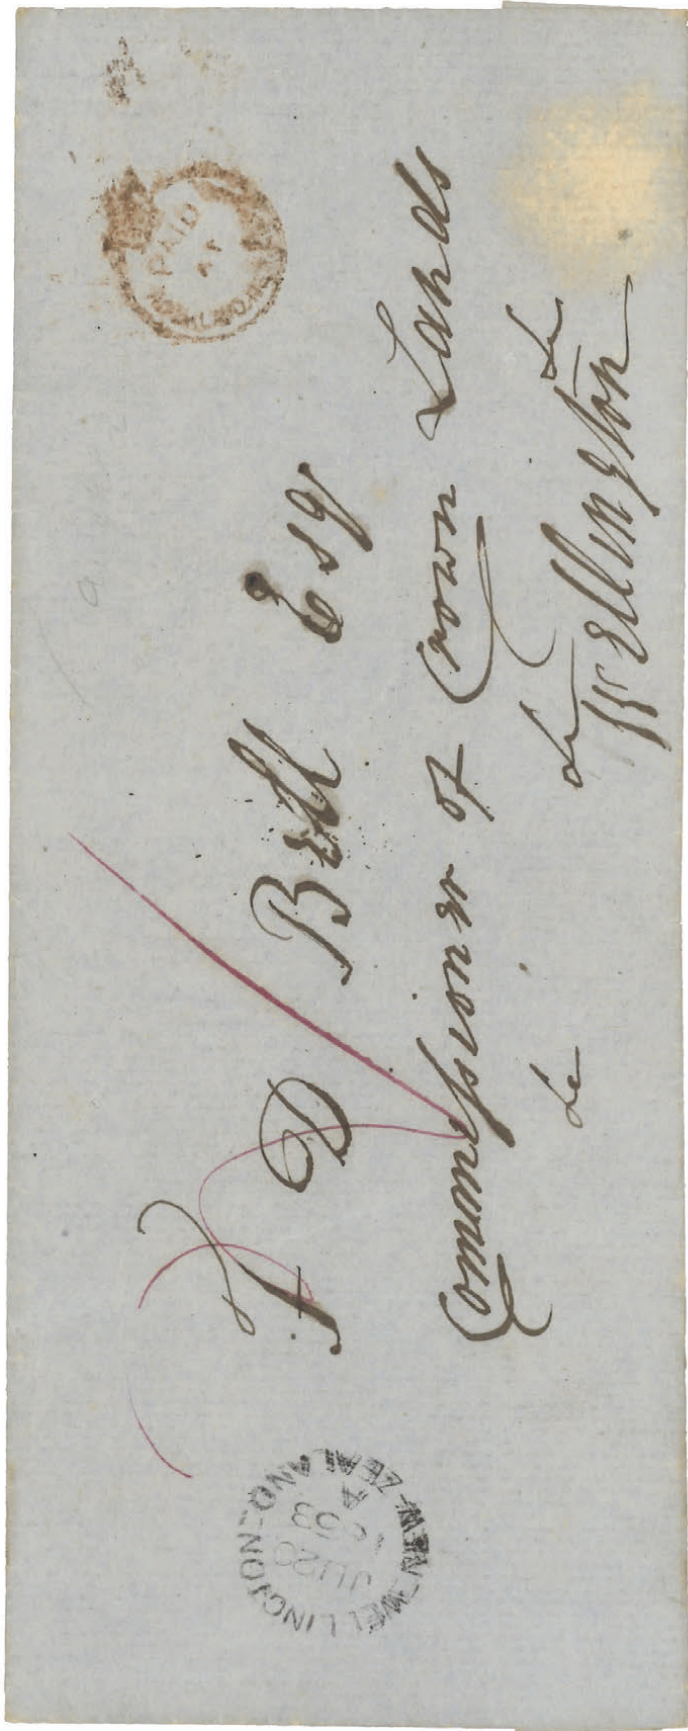 F D Bell Esq
Commissioner of Crown Lands
&c &c &c
Wellington
PAID
AT
WELLINGTON - NEW - ZEALAND
JU 20
1853
A